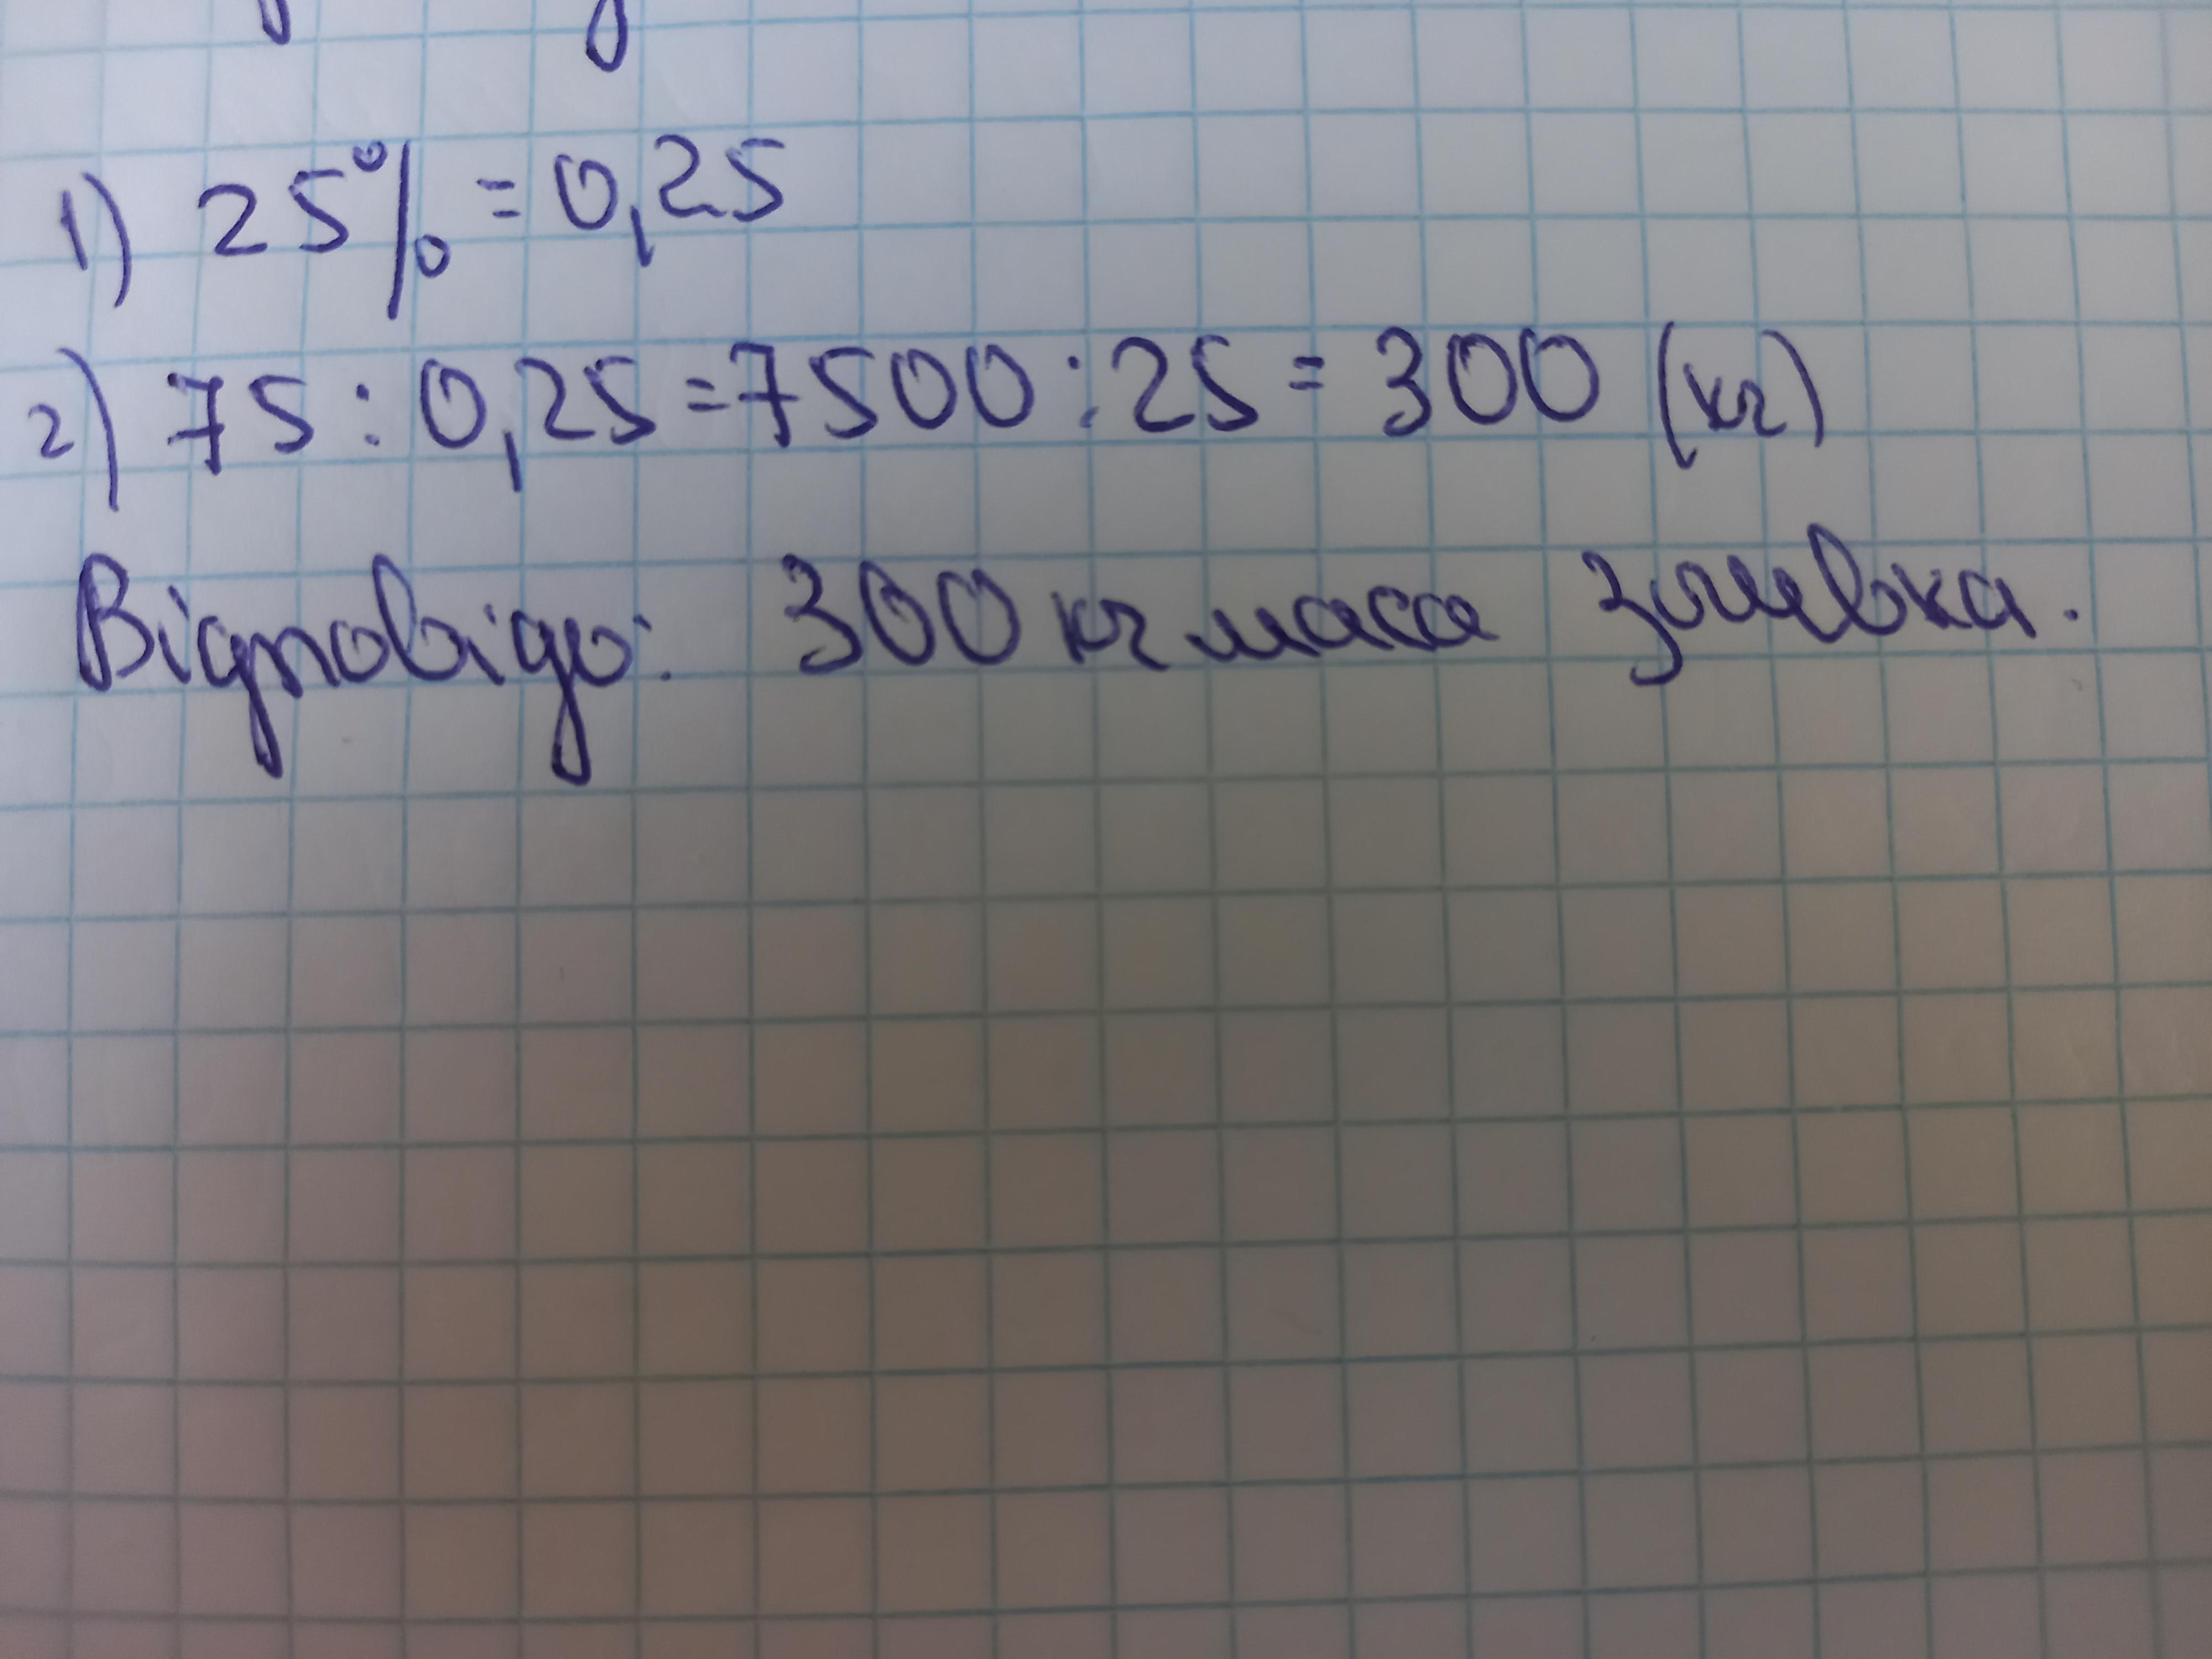 1) 25% = 0,25
2) 75 : 0,25 = 7500 : 25 = 300 (кг)
Відповідь: 300 кг маса зливка.